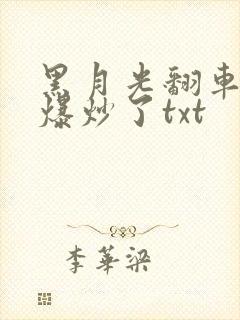 黑月光翻車
爆炒了txt
李華梁